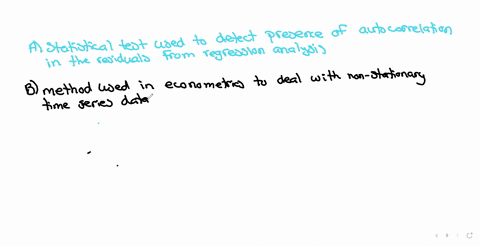 A) Statistical test used to detect presence of autocorrelation
in the residuals from regression analysis
B) method used in econometrics to deal with non-stationary
time series data